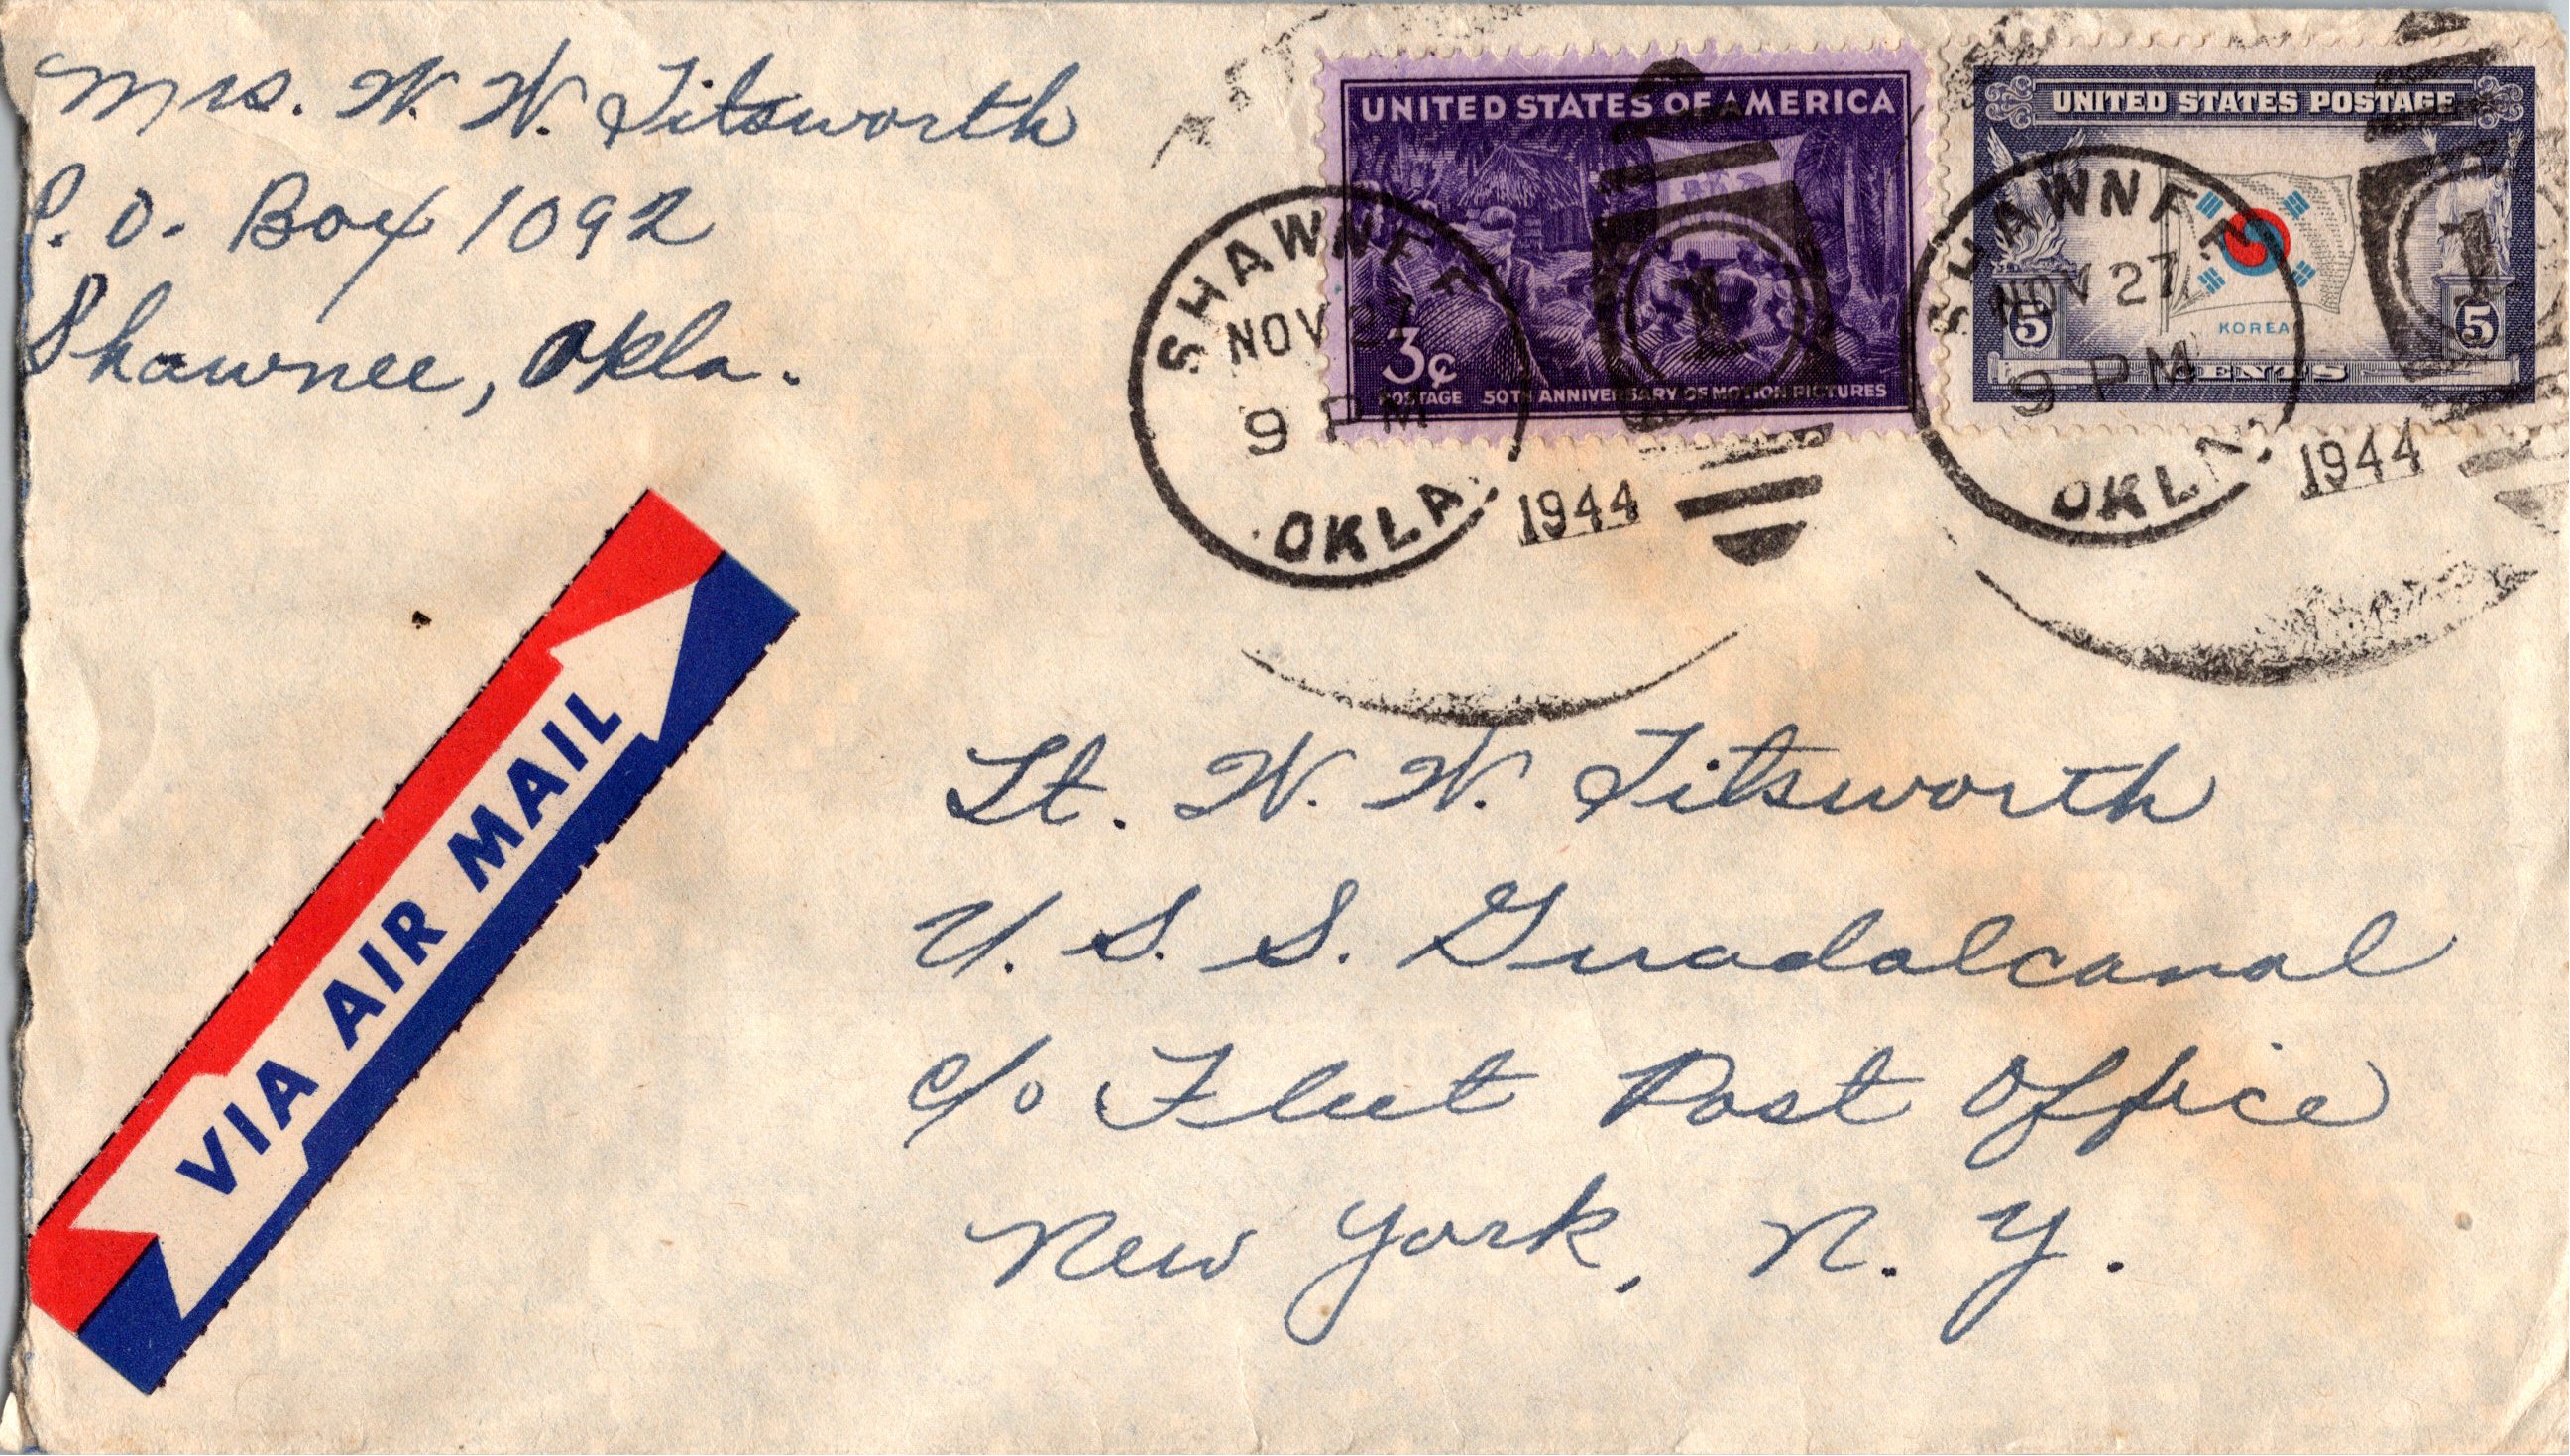 Mrs. W. W. Titsworth
P. O. Box 1092
Shawnee, Okla.
UNITED STATES OF AMERICA
3¢
POSTAGE 50TH ANNIVERSARY OF MOTION PICTURES
UNITED STATES POSTAGE
KOREA
5 5
CENTS
SHAWNEE
NOV 27
9 PM
OKLA.
1944
1
SHAWNEE
NOV 27
9 PM
OKLA.
1944
1
VIA AIR MAIL
Lt. W. W. Titsworth
U. S. S. Guadalcanal
c/o Fleet Post Office
New York, N. Y.